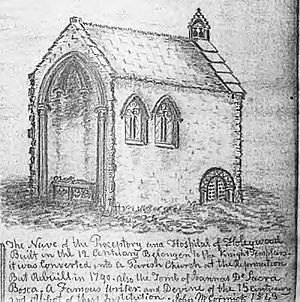 The Nave of the Preceptory and Hospital of Holywood
Built in the 12 Century Belonged to the Knight Templars
it was Converted into A Parish Church at the Reformation
But Rebuilt in 1790. Also the Tomb of Joannes De Sacra
Bosca, A Famous Writer and Devine of the 13 Century
and Abbot of this Institution. John McCormick